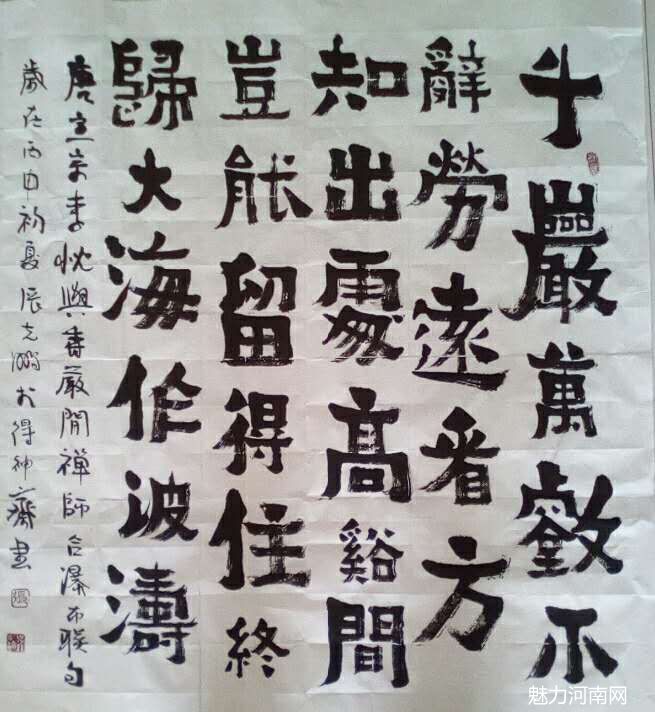 千巖萬壑不
辭勞遠看方
知出處高谿間
豈能留得住終
歸大海作波濤
唐宣宗李忱與香嚴閒禪師合瀑布聯句
歲在丙申初夏張克鵬於得神齋書
魅力河南网